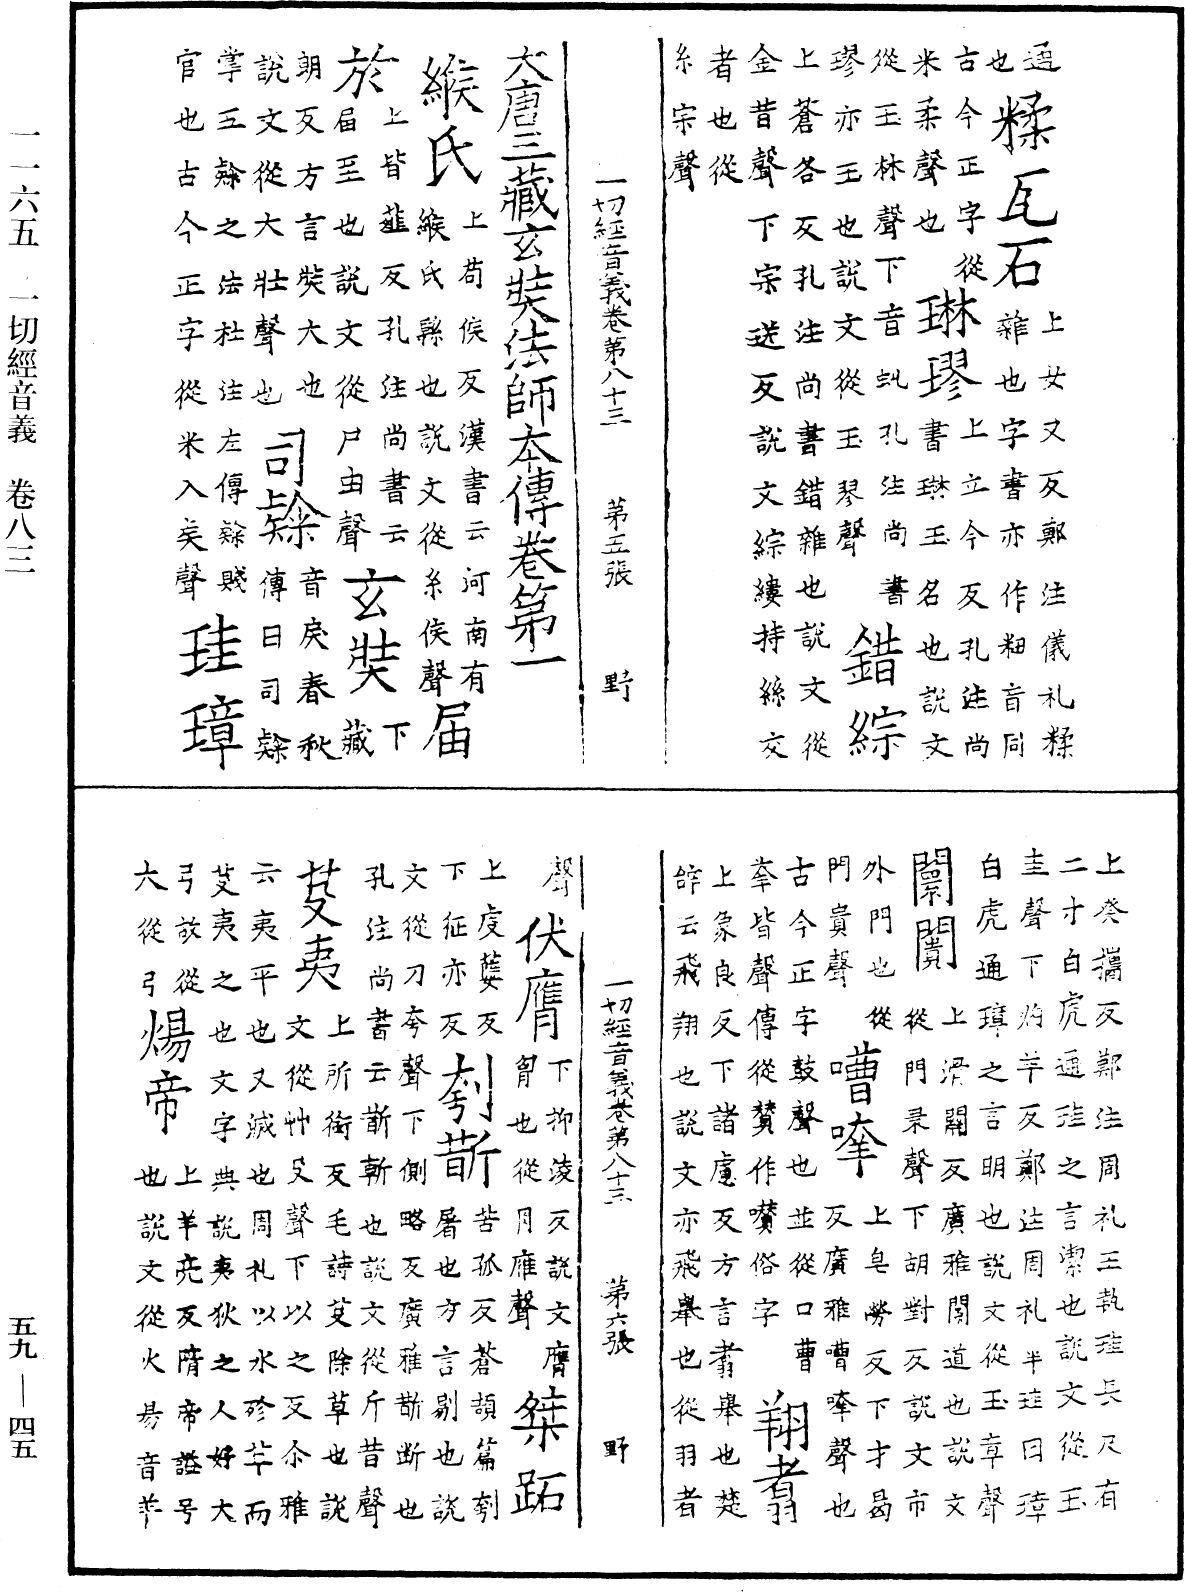 通
也糅瓦石上女又反鄭注儀礼糅
雜也字書亦作粈音同
古今正字從
米柔聲也琳璆上立今反孔注尚
書琳玉名也說文
從玉林聲下音虯孔注尚書
璆亦玉也說文從玉翏聲錯綜
上蒼各反孔注尚書錯雜也說文從
金昔聲下宗送反說文綜縷持絲交
者也從
糸宗聲
一切經音義卷第八十三 第五張 野
大唐三藏玄奘法師本傳卷第一
緱氏上苟侯反漢書云河南有
緱氏縣也說文從糸侯聲届
上皆薤反孔注尚書云
於届至也說文從尸由聲玄奘下
藏
朝反方言奘大也
說文從大壯聲也司䅵音戾春秋
傳曰司䅵
掌五䅵之法杜注左傳䅵賤
官也古今正字從米入矣聲珪璋
上癸攜反鄭注周礼王執珪長尺有
二寸白虎通珪之言潔也說文從玉
圭聲下灼羊反鄭注周礼半珪曰璋
白虎通璋之言明也說文從玉章聲
闤闠上滑關反廣雅闤道也說文
從門睘聲下胡對反說文市
外門也從
門貴聲嘈㗫上皂勞反下才曷
反廣雅嘈㗫聲也
古今正字鼓聲也並從口曹
㗫皆聲傳從贊作囋俗字翔翥
上象良反下諸慮反方言翥舉也楚
辞云飛翔也說文亦飛舉也從羽者
一切經音義卷第八十三 第六張 野
聲伏膺下抑淩反說文膺
胷也從月䧹聲桀跖
上虔蘖反
下征亦反刳斮苦孤反蒼頡篇刳
屠也方言剔也說
文從刀夸聲下側略反廣雅斮断也
孔注尚書云斮斬也說文從斤昔聲
芟夷上所銜反毛詩芟除草也說
文從艸殳聲下以之反尒雅
云夷平也又滅也周礼以水殄草而
芟夷之也文字典說夷狄之人好大
弓故從
大從弓煬帝上羊亮反隋帝謚号
也說文從火昜音羊
一一六五 一切經音義 卷八三
五九—四五